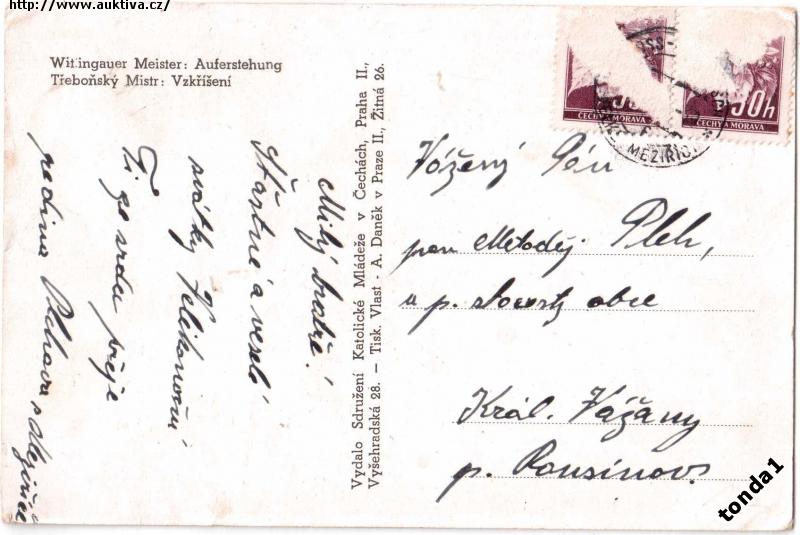 http://www.auktiva.cz/
Wittingauer Meister: Auferstehung
Třeboňský Mistr: Vzkříšení
Milý bratře!
Šťastné a veselé
svátky Velikonoční
Ti ze srdce přeje
rodina
Vydalo Sdružení Katolické Mládeže v Čechách, Praha II.,
Vyšehradská 28. — Tisk. Vlast - A. Daněk v Praze II., Žitná 26.
30h
ČECHY A MORAVA
ČECHY A MORAVA
MEZIŘÍČ
Vážený Pán
pan Metoděj Pleh,
u p. starosty obce
Král. Vážany
p. Rousínov.
tonda1